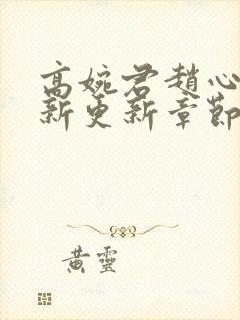 高婉君趙心
新更新章節
黃靈